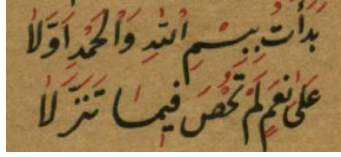 بَدَأْتُ بِبِسْمِ اللهِ وَالْحَمْدِ أَوَّلَا
عَلَى نِعَمٍ لَمْ تُحْصَ فِيمَا تَنَزَّلَا